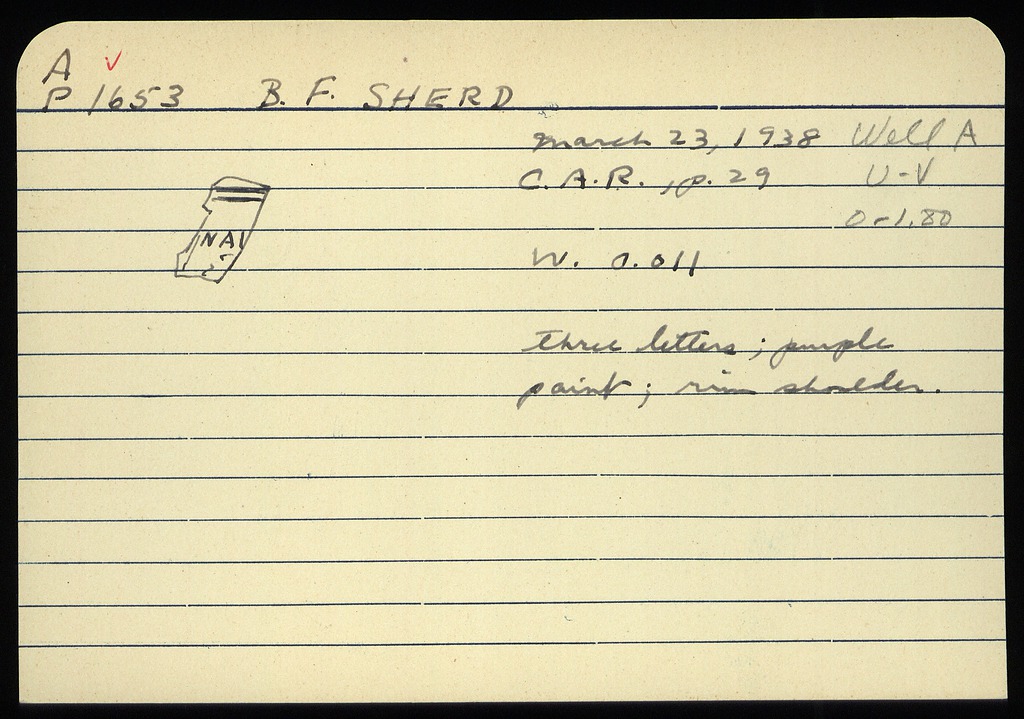 A ✓
P 1653 B. F. SHERD
March 23, 1938 Well A
C. A. R., p. 29 U-V
0-1.80
NAI
W. 0.011
three letters; purple
paint; rim shoulder.